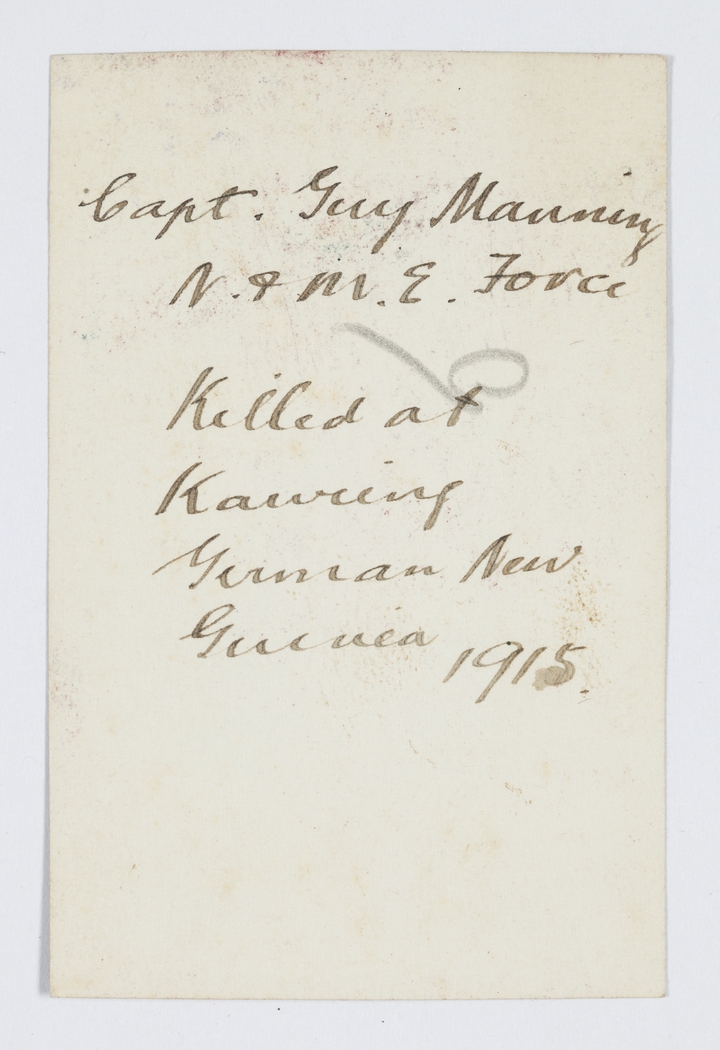 Capt. Guy Manning
N. & M. E. Force
Killed at
Kawieng
German New
Guinea 1915.